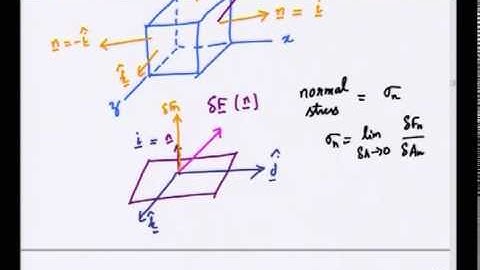 n = î
n = -î
k̂
x
y
δFn
δF (n)
î = n
ĵ
k̂
normal stress = σn
σn = lim δA→0 δFn / δAn